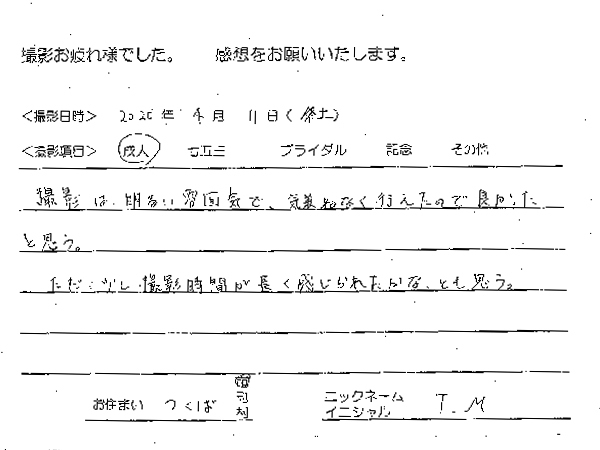 撮影お疲れ様でした。　感想をお願いいたします。
＜撮影日時＞ 年 4月 11日(
＜撮影項目＞ 成人 七五三 ブライダル 記念 その他
撮影は、明るい雰囲気で、気兼ねなく行えたので良かった
と思う。
ただ少し撮影時間が長く感じられたかな、とも思う。
お住まい つくば 市 ニックネーム
イニシャル T.M